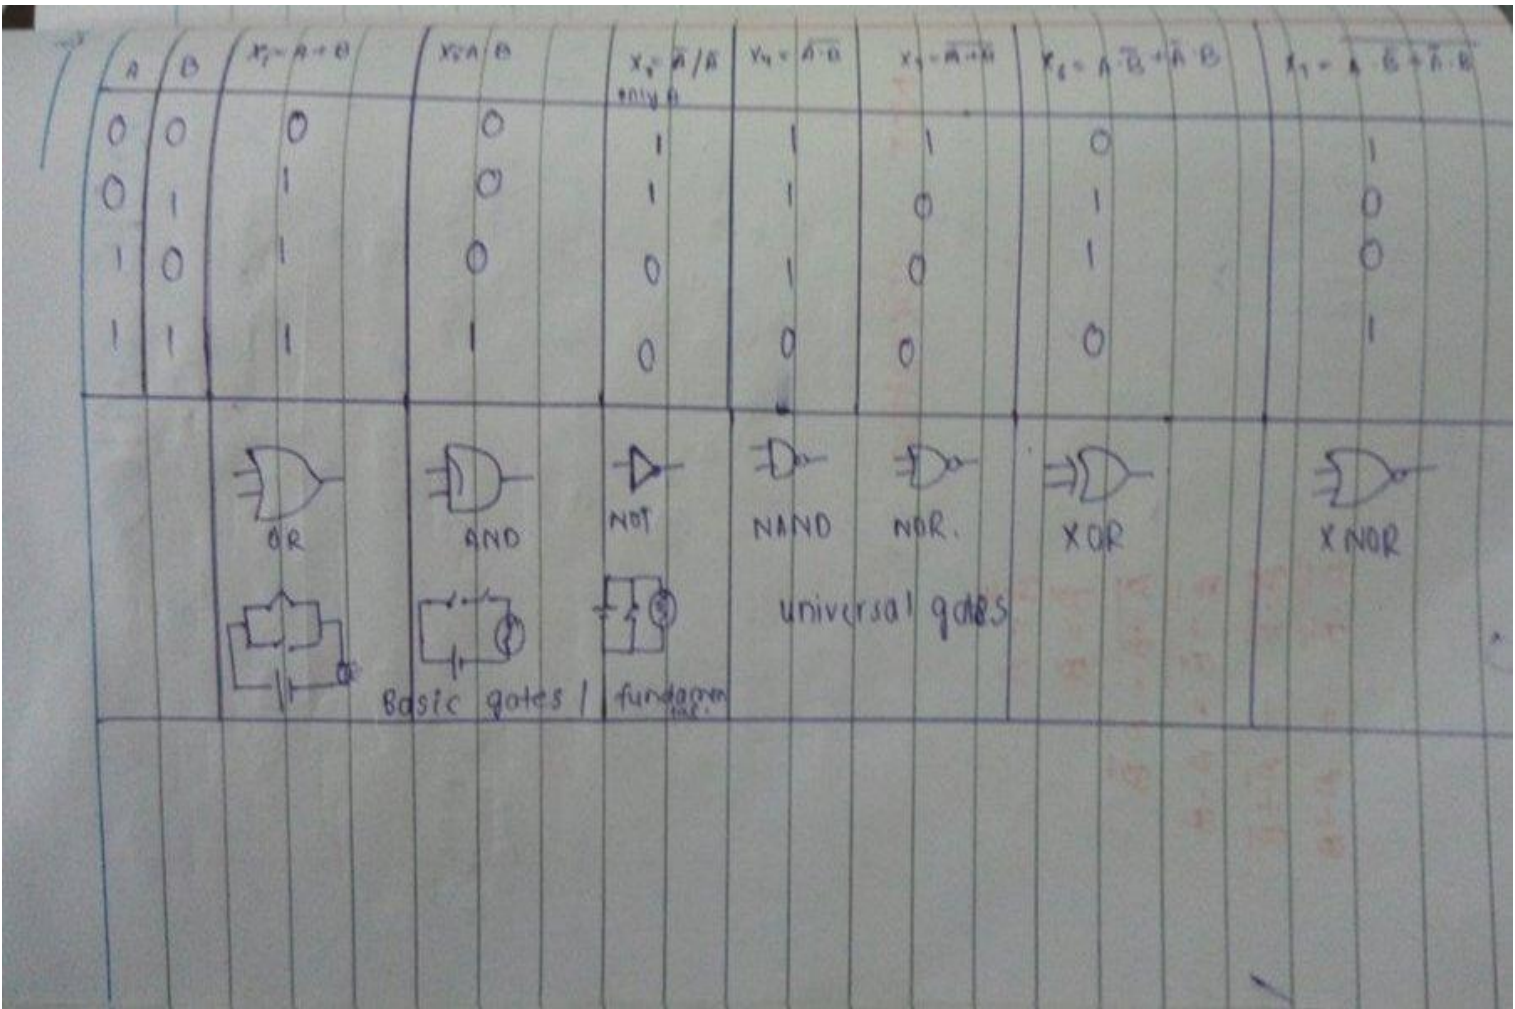 A B X₁ = A + B X₂ = A B X₃ = Ā / Ā X₄ = \overline{A·B} X₅ = \overline{A+B} X₆ = A·B̄ + Ā·B
only A
0 0 0 0 1 1 1 0 1
0 1 1 0 1 1 0 1 0
1 0 1 0 0 1 0 1 0
1 1 1 1 0 0 0 0 1
OR AND NOT NAND NOR. XOR XNOR
universal gates
Basic gates / fundamen
tal.